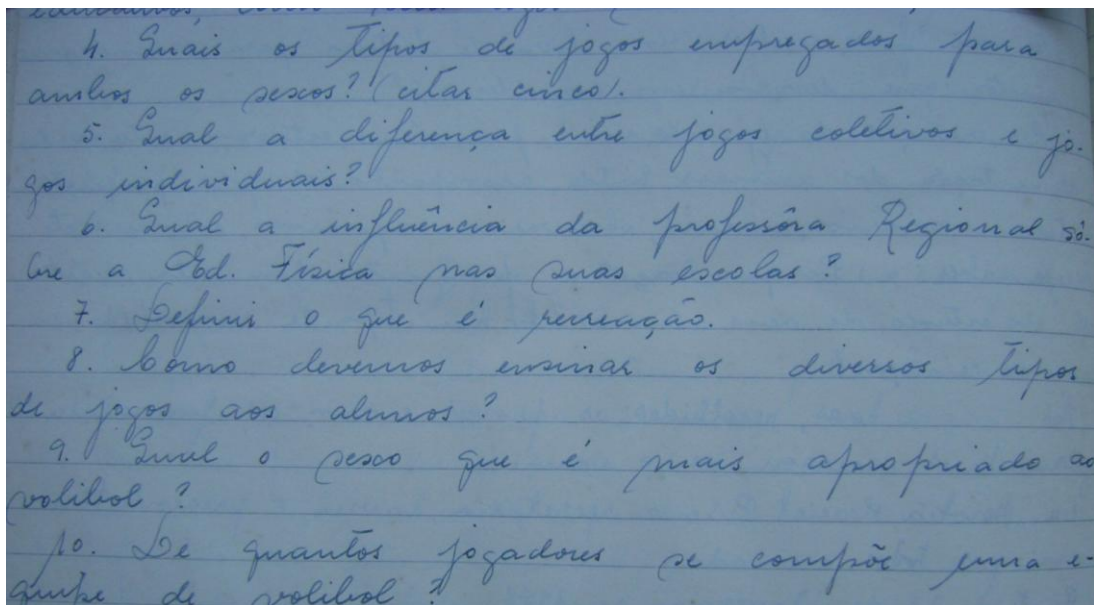 educativos,
4. Quais os tipos de jogos empregados para
ambos os sexos? (citar cinco).
5. Qual a diferença entre jogos coletivos e jo-
gos individuais?
6. Qual a influência da professôra Regional sô-
bre a Ed. Física nas suas escolas?
7. Definir o que é recreação.
8. Como devemos ensinar os diversos tipos
de jogos aos alunos?
9. Qual o sexo que é mais apropriado ao
volibol?
10. De quantos jogadores se compõe uma e-
quipe de volibol?